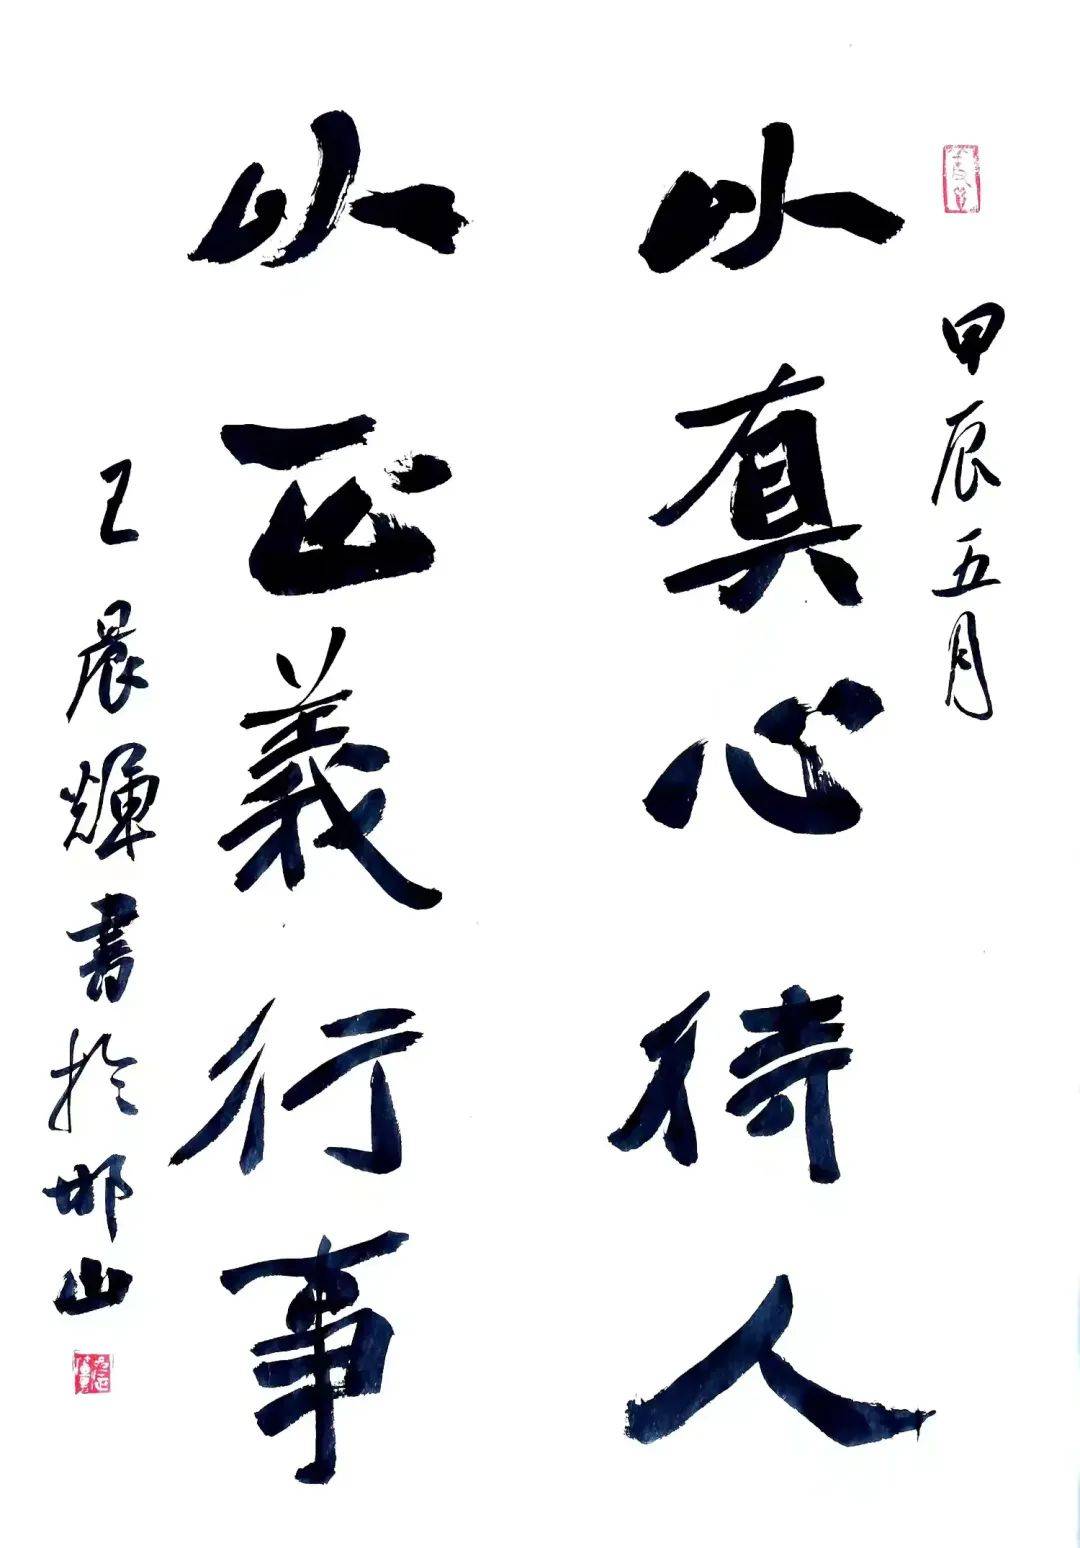 甲辰五月
以真心待人
以正義行事
王晨輝書於邯山